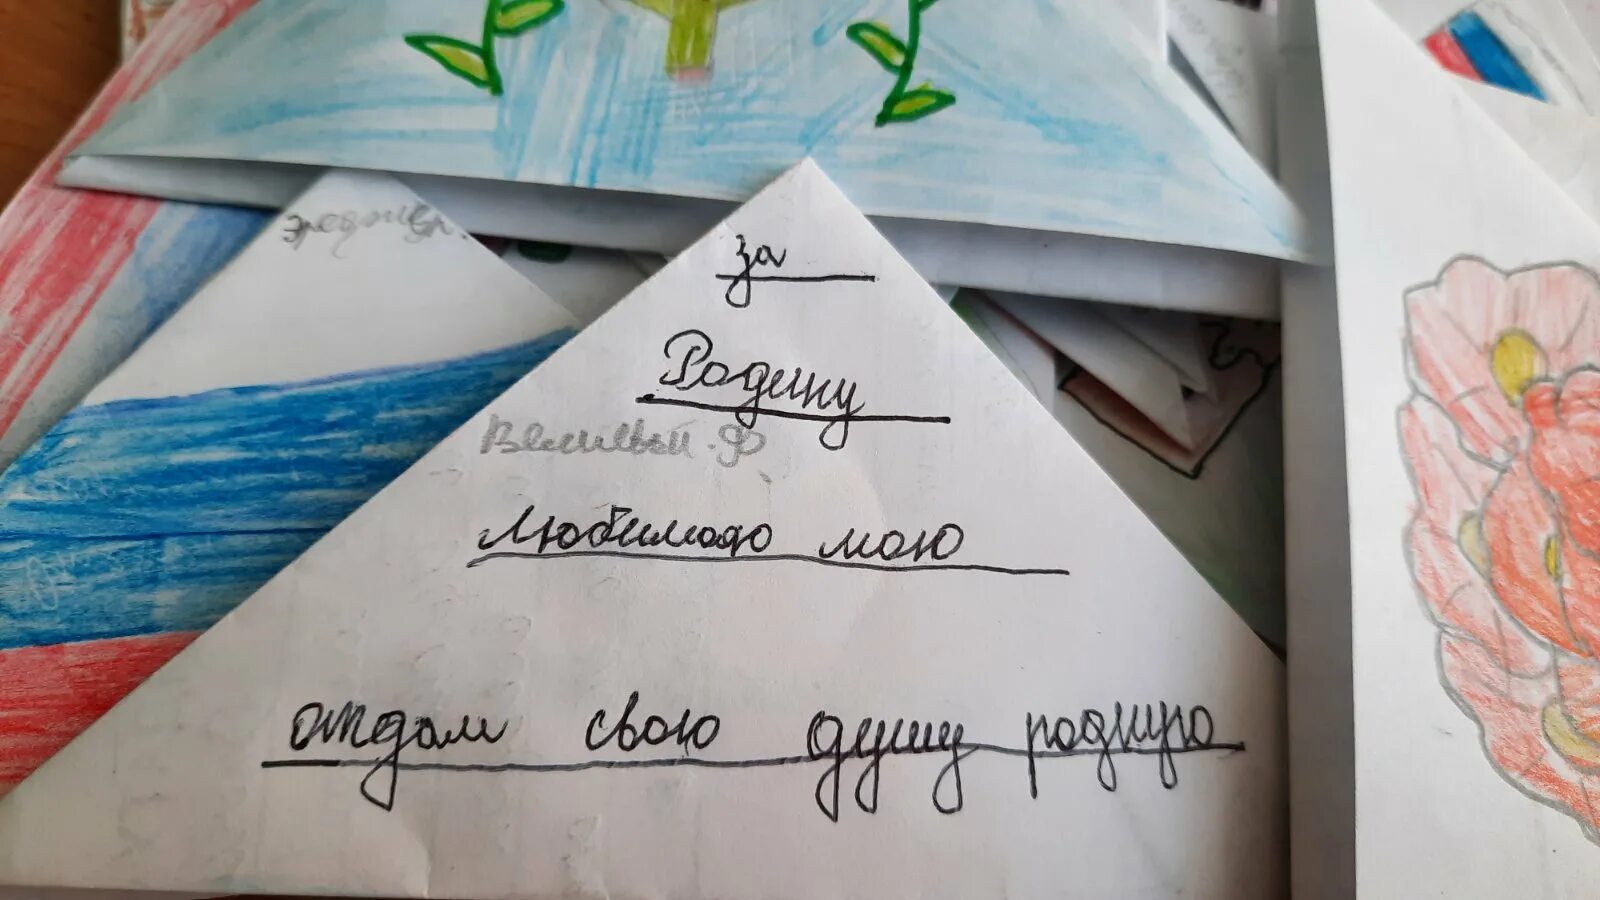 за
Родину
Любимою мою
отдам свою душу родную